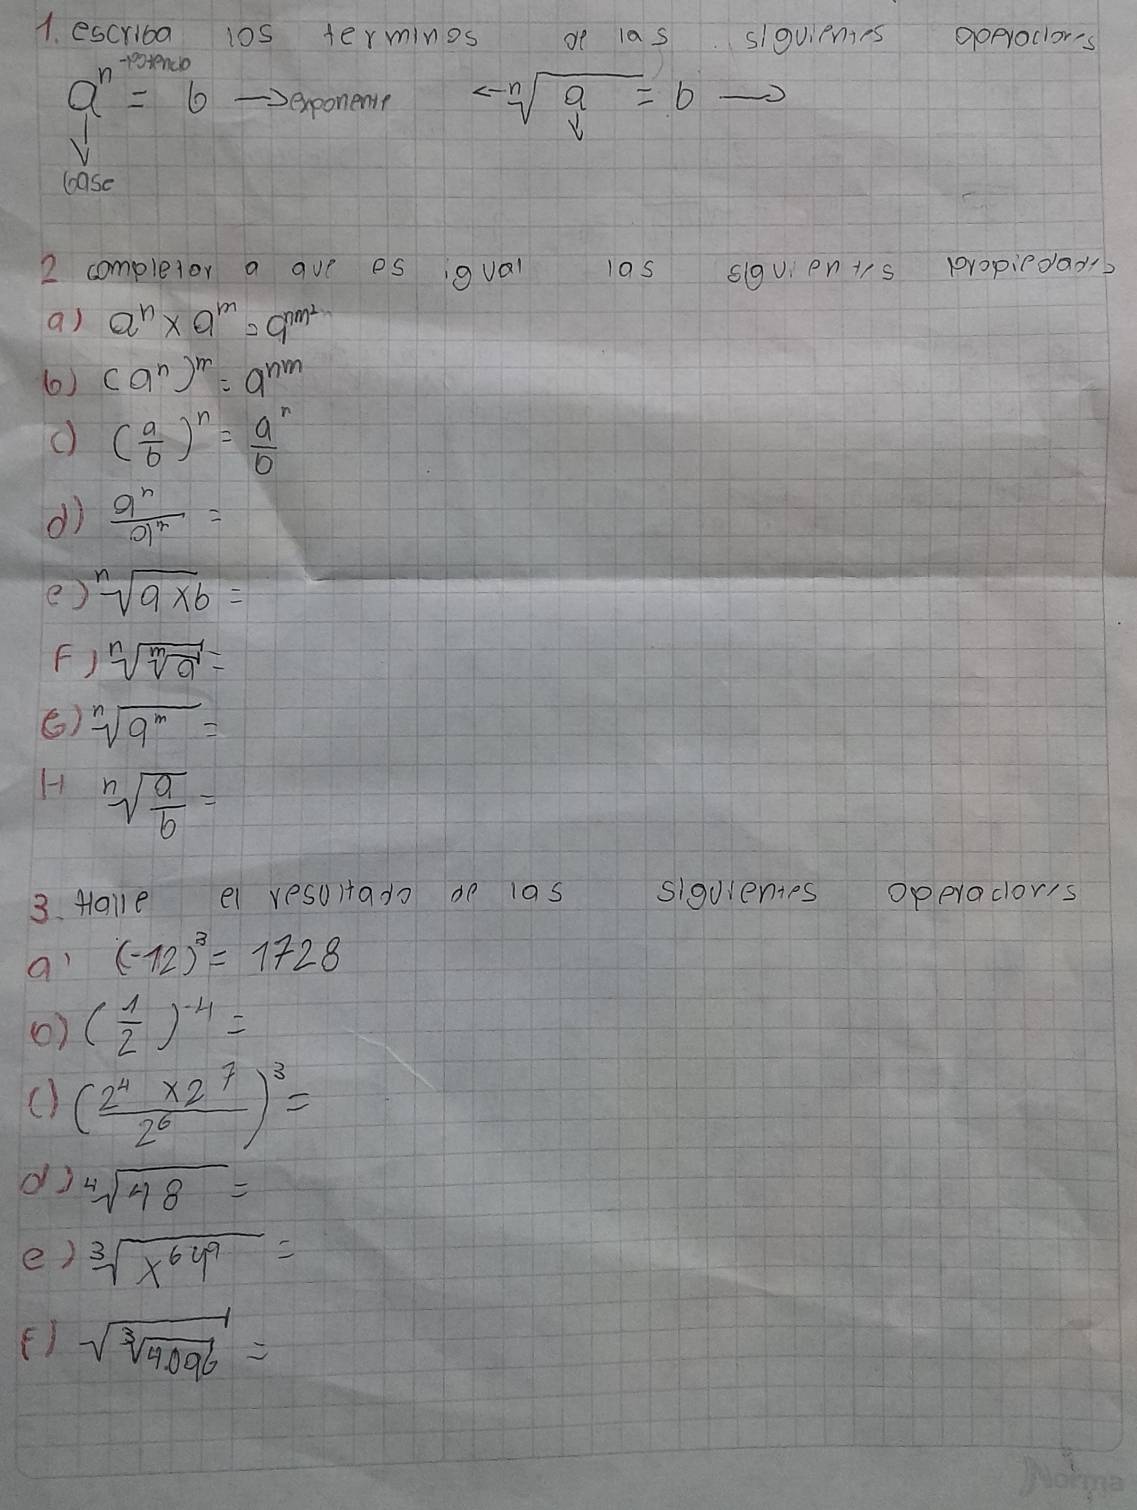 1. escriba los terminos de las siguientes operaciones
aⁿ → potencia = b → exponente ← ⁿ√a = b →
↓ ↓
base
2 completar a que es igual las siguientes propiedades
a) aⁿ x aᵐ = aⁿᵐ²
b) (aⁿ)ᵐ = aⁿᵐ
c) (a/b)ⁿ = a/b ⁿ
d) aⁿ/aⁿ =
e) ⁿ√a x b =
F) ⁿ√ᵐ√a =
G) ⁿ√aᵐ =
H ⁿ√a/b =
3. Halle el resultado de las siguientes operaciones
a) (-12)³ = 1728
b) (1/2)⁻⁴ =
c) (2⁴ x 2⁷/2⁶)³ =
d) ⁴√48 =
e) ³√x⁶y⁹ =
F) √³√4.096 =
Norma